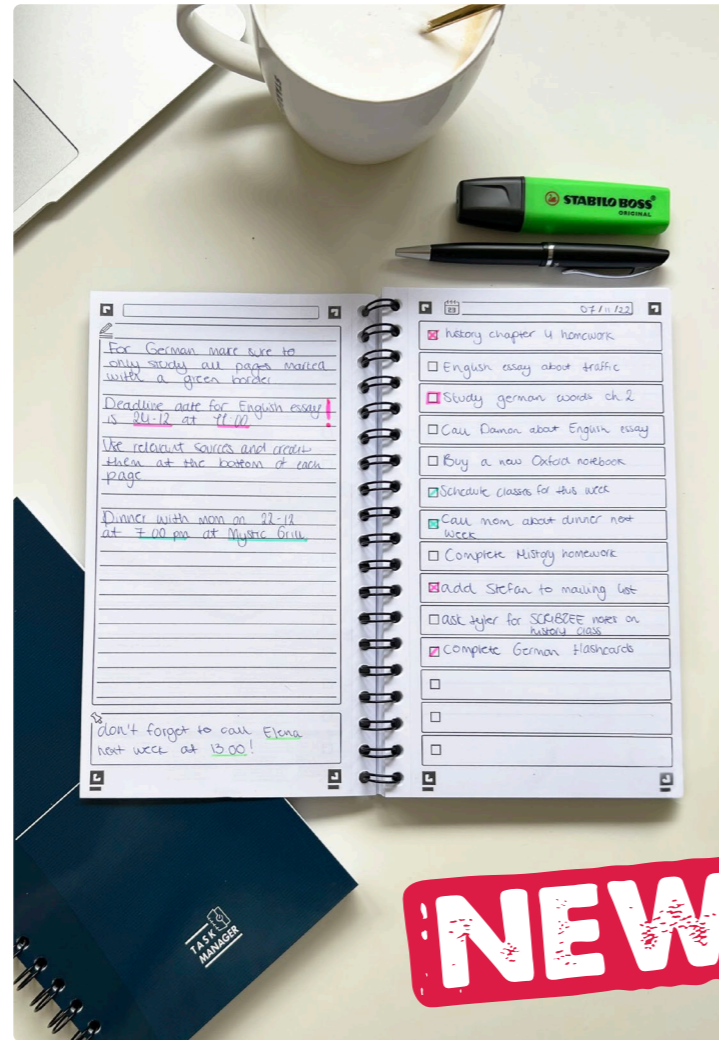 STABILO BOSS
ORIGINAL
For German make sure to
only study all pages marked
with a green border
Deadline date for English essay!
is 24-12 at 11:00
Use relevant sources and credit
them at the bottom of each
page
Dinner with mom on 22-12
at 7:00 pm at Mystic Grill
don't forget to call Elena
next week at 13:00!
23
07/11/22
history chapter 4 homework
English essay about traffic
Study german words ch 2
Call Damon about English essay
Buy a new Oxford notebook
Schedule classes for this week
Call mom about dinner next
week
Complete History homework
add Stefan to mailing list
ask tyler for SCRIBZEE notes on
history class
Complete German flashcards
TASK
MANAGER
NEW